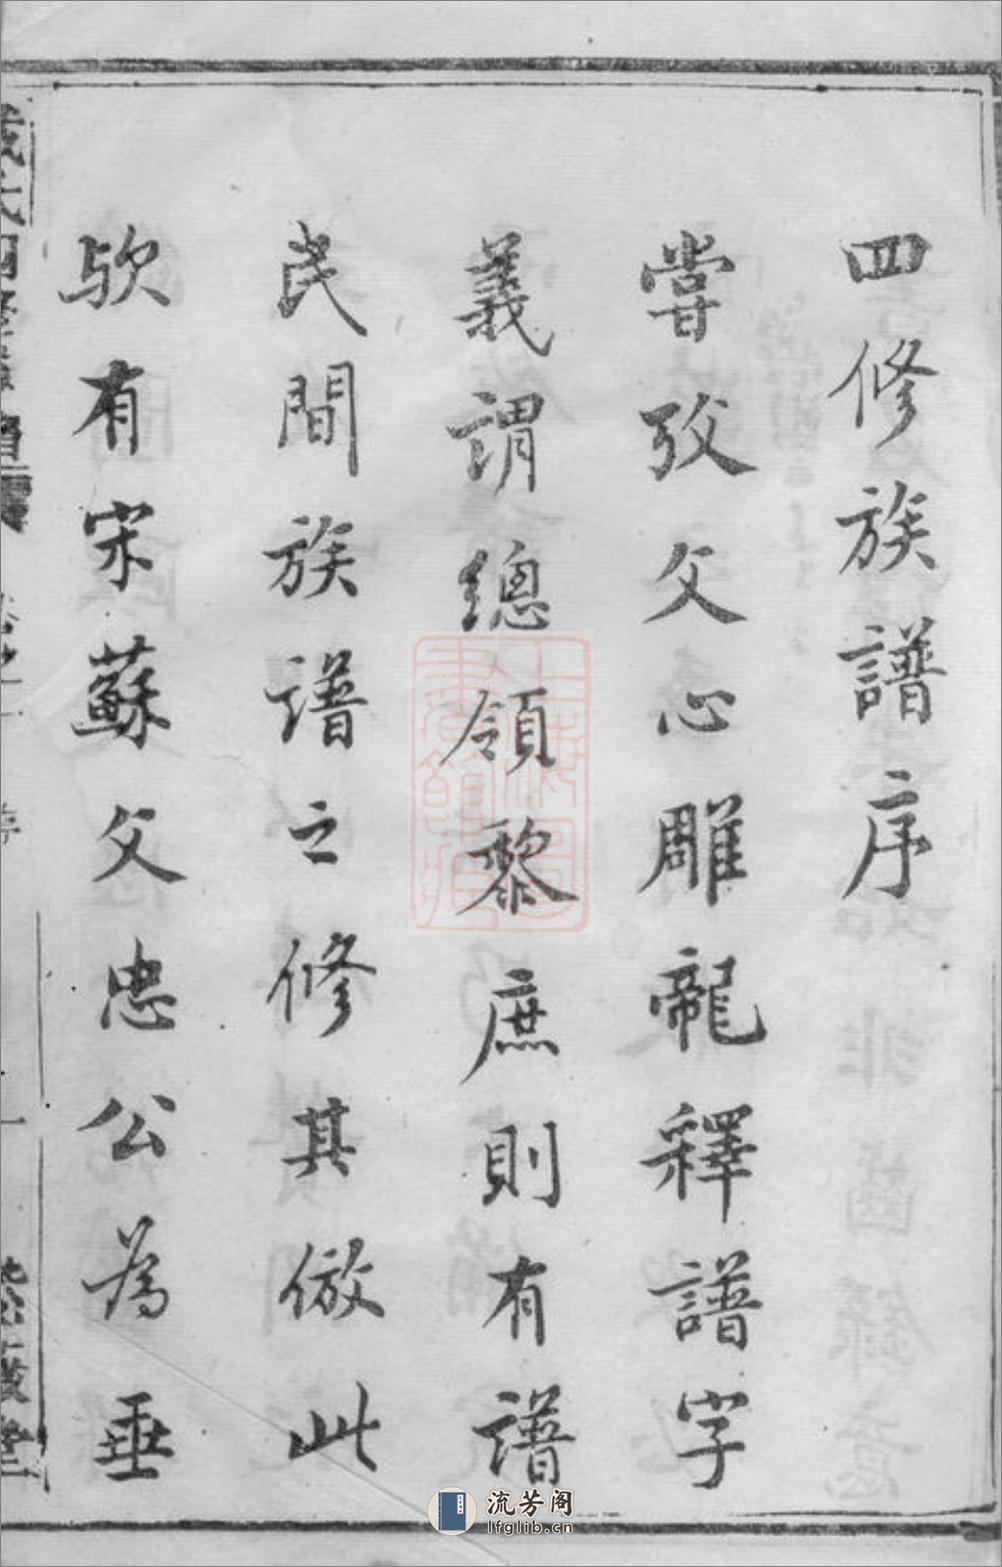 四修族譜序
嘗攷文心雕龍釋譜字
義謂總領黎庶則有譜
民間族譜之修其倣此
欤有宋蘇文忠公為垂
流芳阁
lfglib.cn